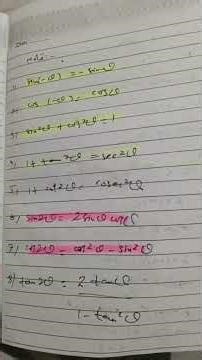 Note :-
1) sin(-θ) = -sinθ
2) cos(-θ) = cosθ
3) sin²θ + cos²θ = 1
4) 1 + tan²θ = sec²θ
5) 1 + cot²θ = cosec²θ
6) sin2θ = 2 sinθ cosθ
7) cos2θ = cos²θ - sin²θ
8) tan2θ = 2 tanθ
1 - tan²θ